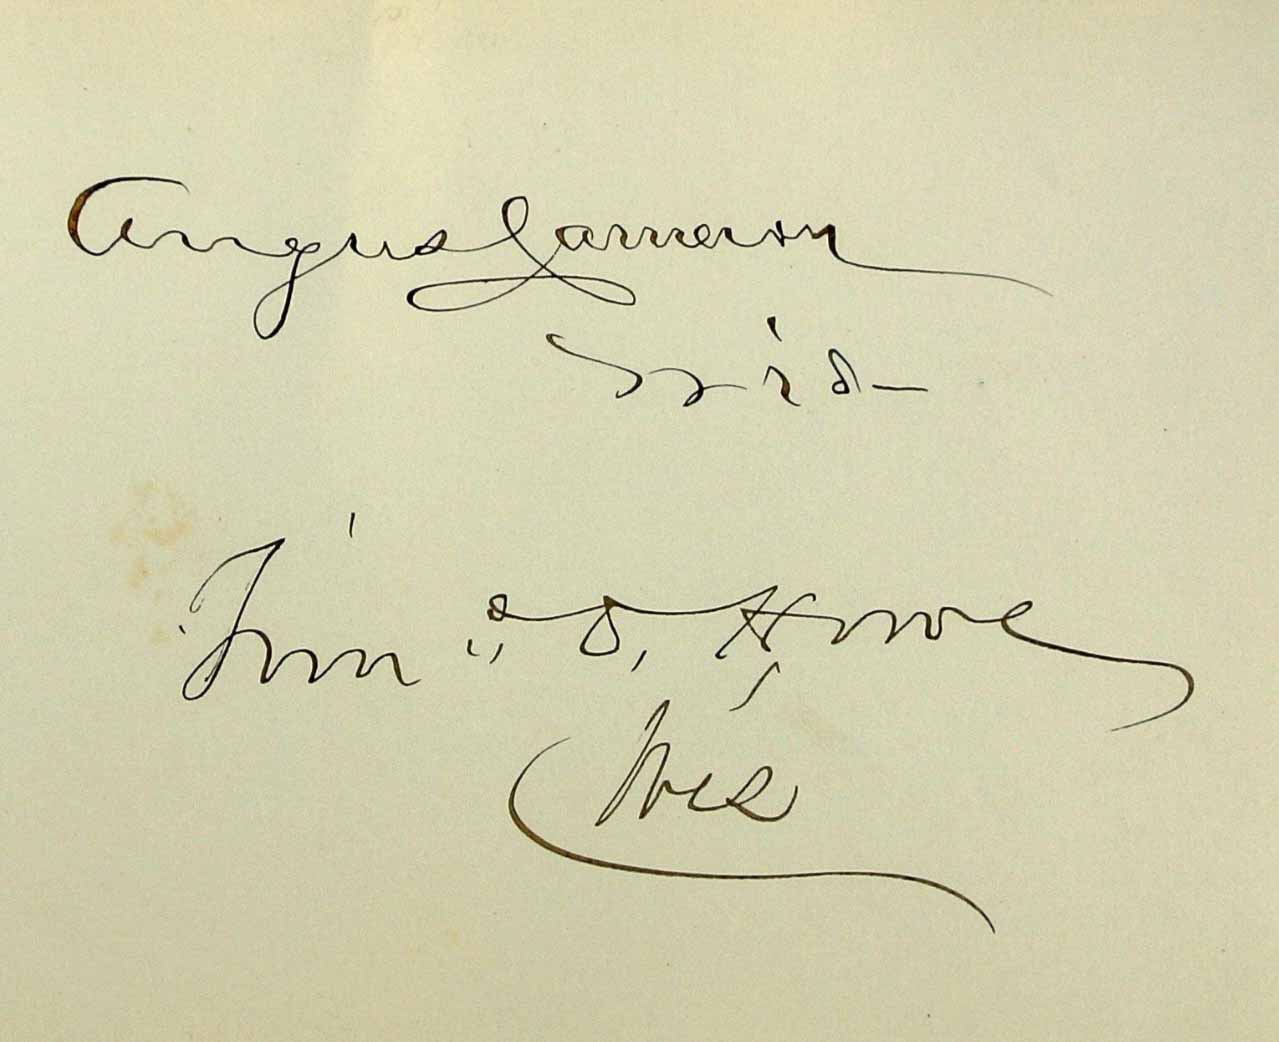 Angus Cameron
Wis—
Tim: O. Howe
Wis